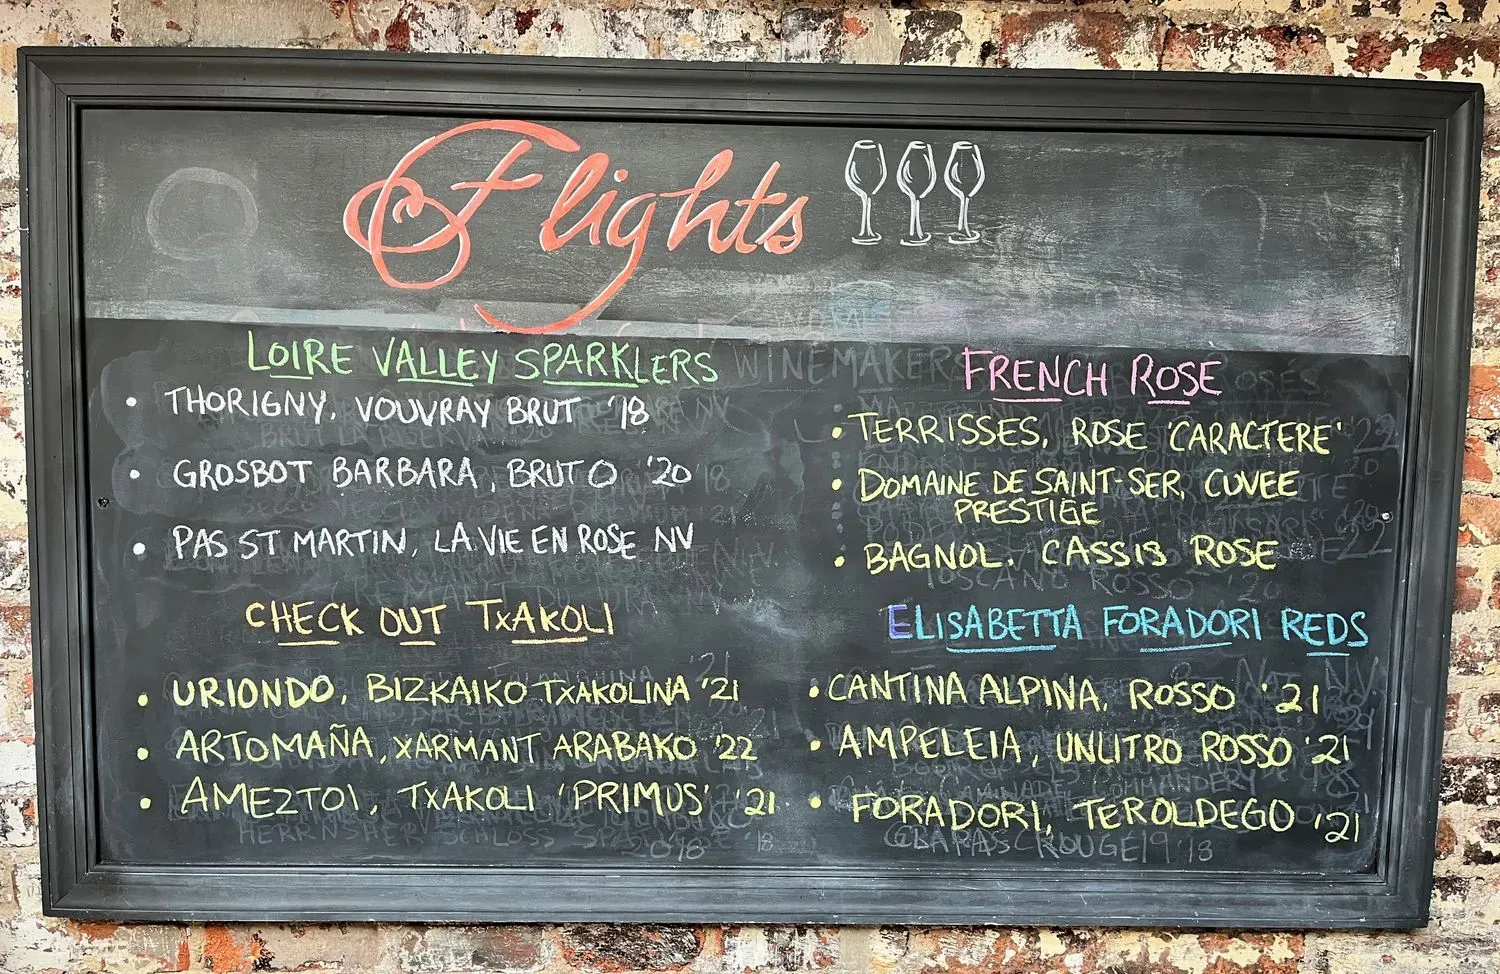 Flights
LOIRE VALLEY SPARKLERS
• THORIGNY, VOUVRAY BRUT '18
• GROSBOT BARBARA, BRUT O '20
• PAS ST MARTIN, LA VIE EN ROSE NV
CHECK OUT TXAKOLI
• URIONDO, BIZKAIKO TXAKOLINA '21
• ARTOMAÑA, XARMANT ARABAKO '22
• AMEZTOI, TXAKOLI 'PRIMUS' '21
WINEMAKER
FRENCH ROSE
• TERRISSES, ROSE 'CARACTERE'
• DOMAINE DE SAINT-SER, CUVEE
PRESTIGE
• BAGNOL, CASSIS ROSE
TOSCANO ROSSO '20
ELISABETTA FORADORI REDS
• CANTINA ALPINA, ROSSO '21
• AMPELEIA, UNLITRO ROSSO '21
• FORADORI, TEROLDEGO '21